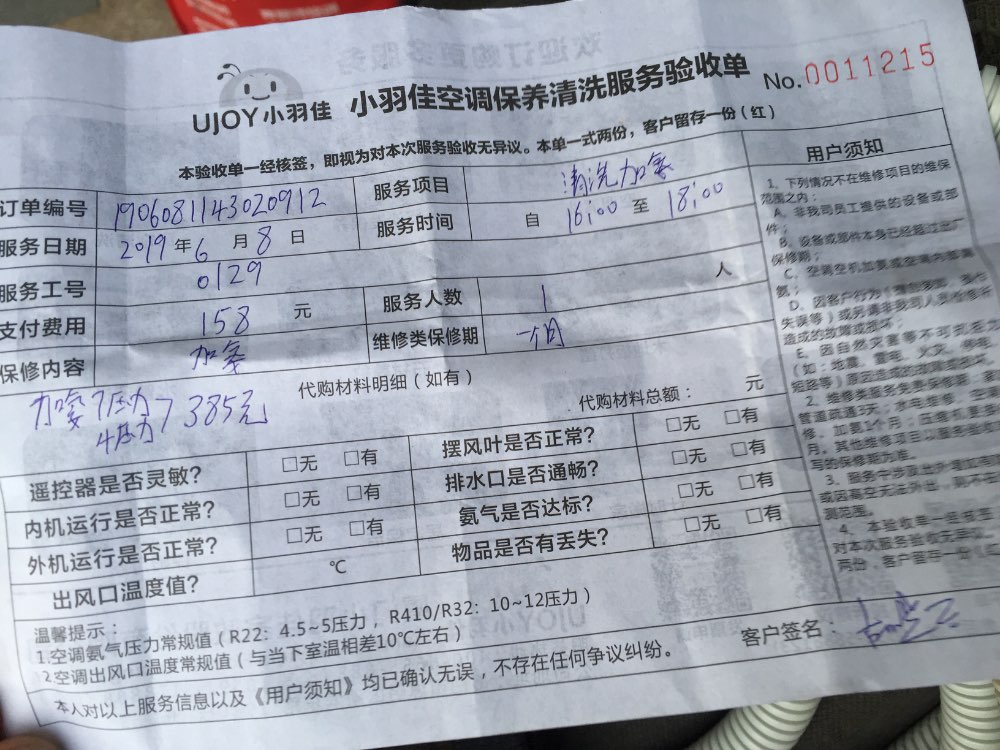 UJOY小羽佳 小羽佳空调保养清洗服务验收单 No.0011215
本验收单一经核签，即视为对本次服务验收无异议。本单一式两份，客户留存一份（红）
订单编号 1906081143020912 服务项目 清洗加氨
服务日期 2019年6月8日 服务时间 自 16:00 至 18:00
服务工号 0129
支付费用 158 元 服务人数 1 人
保修内容 加氨 维修类保修期 一个月
代购材料明细（如有）
加氨 7压力 385元
4压力
代购材料总额： 元
遥控器是否灵敏? □无 □有 摆风叶是否正常? □无 □有
内机运行是否正常? □无 □有 排水口是否通畅? □无 □有
外机运行是否正常? □无 □有 氨气是否达标? □无 □有
出风口温度值? ℃ 物品是否有丢失? □无 □有
温馨提示：
1.空调氨气压力常规值（R22：4.5~5压力，R410/R32：10~12压力）
2.空调出风口温度常规值（与当下室温相差10℃左右）
本人对以上服务信息以及《用户须知》均已确认无误，不存在任何争议纠纷。
客户签名：
用户须知
1、下列情况不在维修项目的维保
范围之内：
A、非我司员工提供的设备或部
件；
B、设备或部件本身已经超过出厂
保修期；
C、空调空机加氨或空调内部漏
氨；
D、因客户行为
失误等）或另请非我司人员检修
造成的故障或损坏；
E、因自然灾害等不可抗
（如：地震、雷电、火灾、
短路等）原因造成的故障或损坏。
2、维修类服务免费保修期：
管道疏通3天；水电维修、空调
修、加氨1个月；压缩机更换
月。其他维修项目以服务验收
写的保修期为准。
3、服务中涉及
或因高空无法外出，
测范围。
4、本验收单一经核签，
对本次服务验收无异议。
两份，客户留存一份